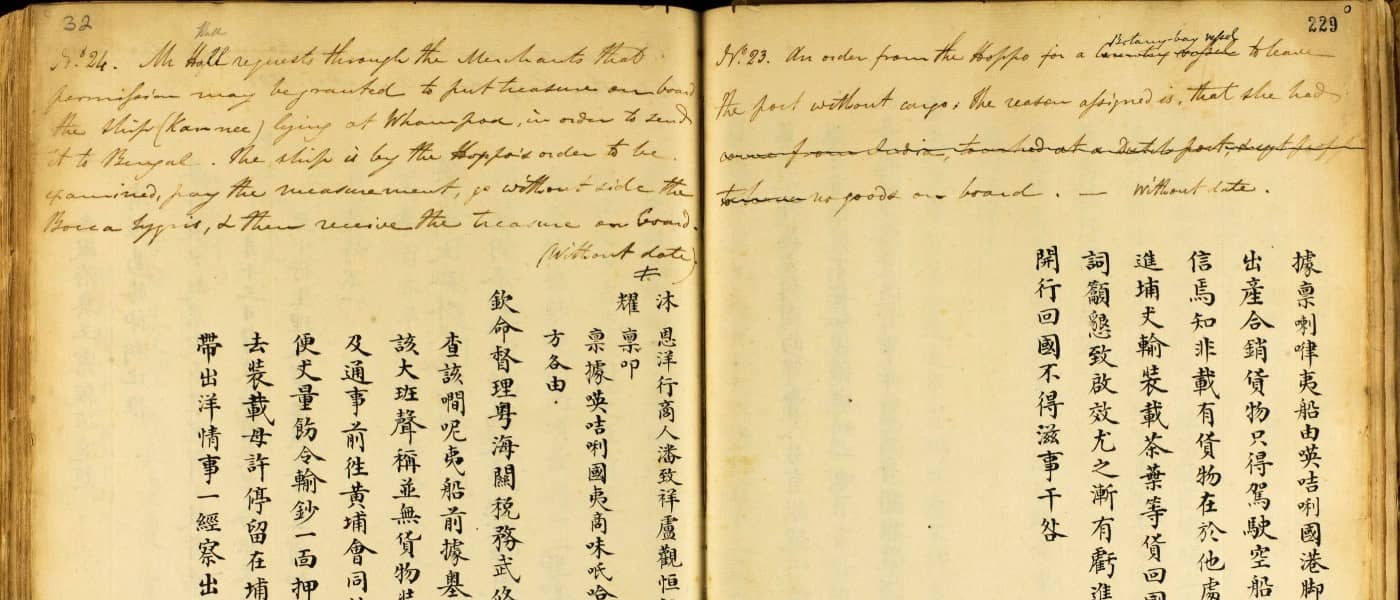 32
Hall
No. 24. Mr Hall requests through the Merchants that
permission may be granted to put treasure on board
the ship (Kannee) lying at Whampoa, in order to send
it to Bengal. The ship is by the Hoppo's order to be
examined, pay the measurement, go without side the
Bocca Tygris, & then receive the treasure on board.
(Without date)
沐恩洋行商人潘致祥盧觀恒
耀稟叩
稟據𠸄咭唎國夷商味哌哈
方各由
欽命督理粵海關稅務武俻
查該㗴呢夷船前據㙠
該大班聲稱並無貨物裝
及通事前徃黃埔會同
便丈量飭令輸鈔一靣押
去裝載毋許停留在埔
帶出洋情事一經察出
229
Botany-bay vessel
No. 23. An order from the Hoppo for a Country vessel to leave
the port without cargo; the reason assigned is, that she had
came from India, touched at a Dutch port, &
no goods on board. — Without date.
據稟喇㖀夷船由𠸄咭唎國港脚
出產合銷貨物只得駕駛空船
信焉知非載有貨物在於他處
進埔丈輸裝載茶葉等貨回國
詞籲懇致啟效尤之漸有虧進
開行回國不得滋事干咎